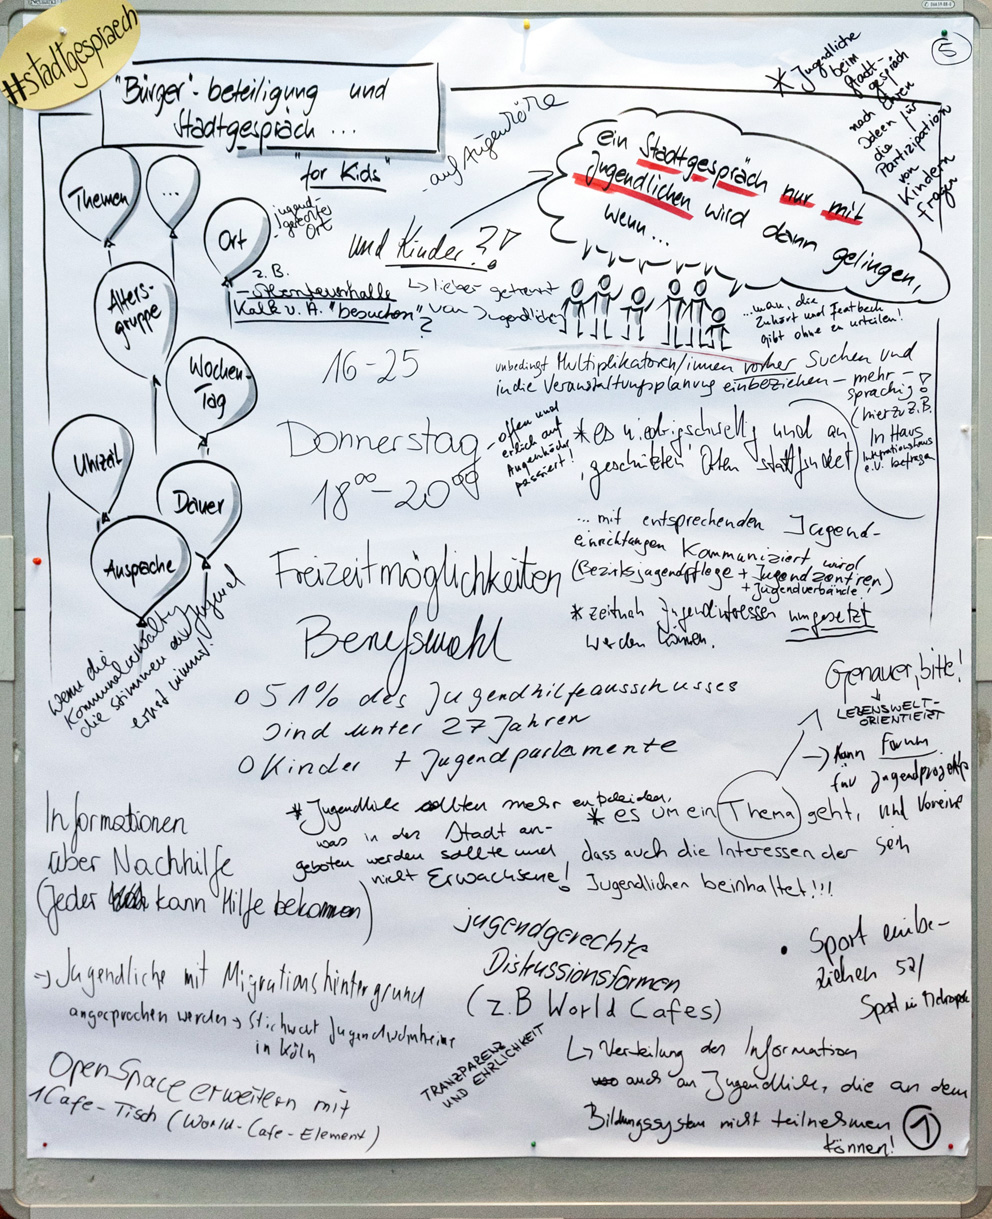 #stadtgespraech
"Bürger"- beteiligung und
Stadtgespräch ...
"for Kids"
- auf Augenhöhe
5
* Jugendliche
beim
Stadt-
gespräch
nach ihren
Ideen für
die
Partizipation
von
Kindern
fragen
ein Stadtgespräch nur mit
Jugendlichen wird dann gelingen,
wenn ...
Themen
...
Ort
jugend-
gerechter
Ort
z. B.
Kalk u. A. "besuchen"
?
und Kinder?!
↳ lieber getrennt
von Jugendlichen
... man, die
zuhört und Featback
gibt ohne zu urteilen!
Alters-
gruppe
Wochen-
Tag
Uhrzeit
Dauer
Ansprache
16-25
Donnerstag
18⁰⁰-20⁰⁰
Freizeitmöglichkeiten
Berufswahl
unbedingt Multiplikatoren/innen vorher suchen und
in die Veranstaltungsplanung einbeziehen - mehr-
sprachig!
(hierzu z.B.
In Haus
Integrationshaus
e.V. befragen
- offen und
erlich auf
Augenhöhe
passiert!
* es niedrigschwellig und an
'geschützten' Orten stattfindet
... mit entsprechenden Jugend-
einrichtungen kommuniziert wird
(Bezirksjugendpflege + Jugendzentren)
+ Jugendverbände!
* zeitnah Jugendinteressen umgesetzt
werden können.
Wenn die
Kommunalverwaltung
die Stimmen der Jugend
ernst nimmt!
o 51% des Jugendhilfeausschusses
sind unter 27 Jahren
o Kinder + Jugendparlamente
Genauer, bitte!
LEBENSWELT-
ORIENTIERT
→ kann Forum
für Jugendprojekte
und Vereine
sein
* Jugendliche sollten mehr entscheiden,
was in der Stadt an-
geboten werden sollte und
nicht Erwachsene!
* es um ein Thema geht,
dass auch die Interessen der
Jugendlichen beinhaltet!!!
Informationen
über Nachhilfe
(Jeder kann Hilfe bekommen)
jugendgerechte
Diskussionsformen
(z.B World Cafes)
• Sport einbe-
ziehen
Sport in Metropole
→ Jugendliche mit Migrationshintergrund
angesprochen werden → Stichwort Jugendwohnheime
in Köln
TRANZPARENZ
UND EHRLICHKEIT
↳ Verteilung der Information
auch an Jugendliche, die an dem
Bildungssystem nicht teilnehmen
können!
1
Open Space erweitern mit
1 Cafe-Tisch (World-Cafe-Element)